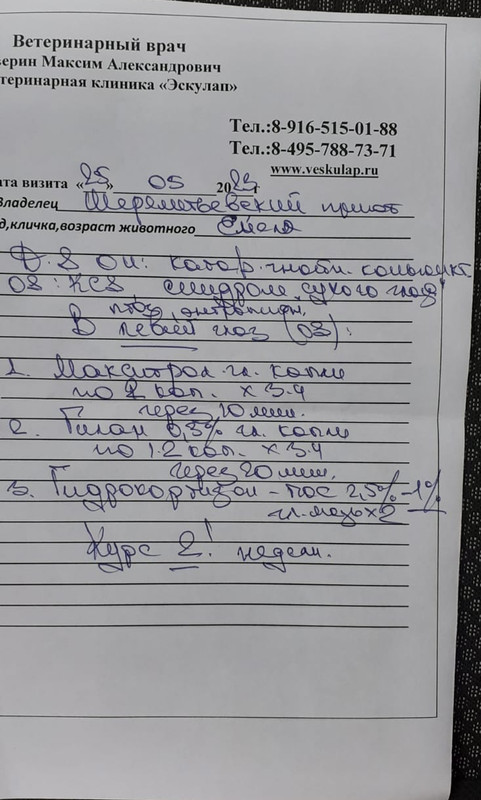 Ветеринарный врач
верин Максим Александрович
етеринарная клиника «Эскулап»
Тел.:8-916-515-01-88
Тел.:8-495-788-73-71
www.veskulap.ru
ата визита «25» 05 2023г
Владелец Шереметьевский приют
д,кличка,возраст животного Емеля
OU: катар. гнойн. конъюнкт.
OS: KCS синдром сухого глаза
энтропион.
В левый глаз (OS):
1. Макситрол гл. капли
по 2 кап. х 3-4
через 10 мин.
2. Гилан 0,3% гл. капли
по 1-2 кап. х 3-4
через 20 мин.
3. Гидрокортизон-пос 2,5%-1%
гл. мазь х 2
Курс 2! недели.